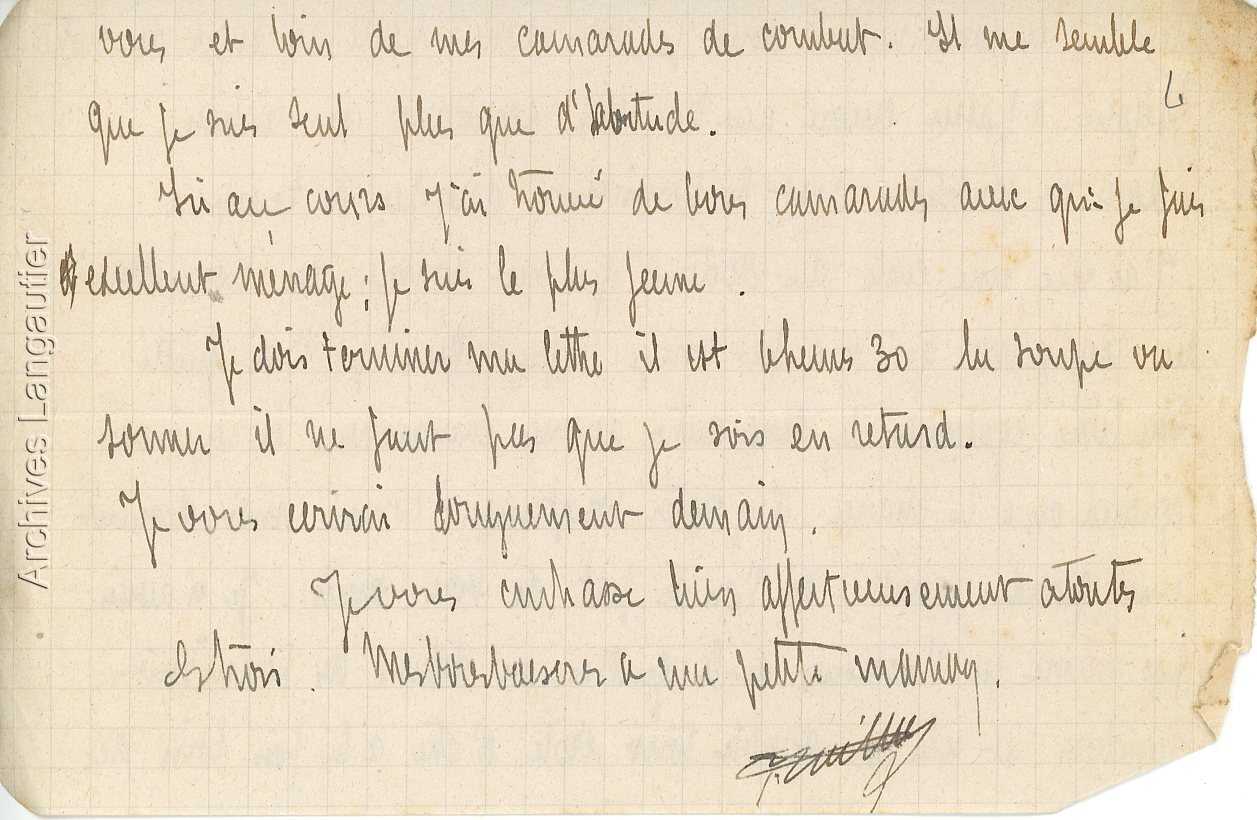 vous et loin de mes camarades de combat. Il me semble
4
que je suis seul plus que d'habitude.
Ici au cours j'ai trouvé de bons camarades avec qui je fais
excellent ménage ; je suis le plus jeune.
Je dois terminer ma lettre il est 6 heures 30 la soupe va
sonner il ne faut pas que je sois en retard.
Je vous écrirai longuement demain.
Je vous embrasse bien affectueusement a toutes
les trois. Mes bons baisers a ma petite maman.
Archives Langautier